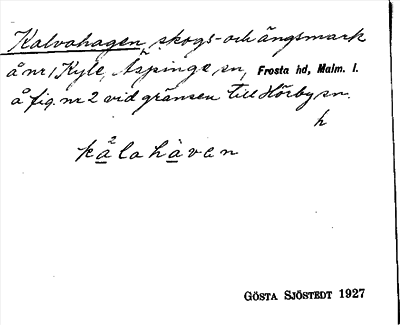 Kalvahagen, skogs- och ängsmark
å nr 1 Kyle, Äspinge sn, Frosta hd, Malm. l.
å fig. nr 2 vid gränsen till Hörby sn.
h
ka²lahàvan
GÖSTA SJÖSTEDT 1927